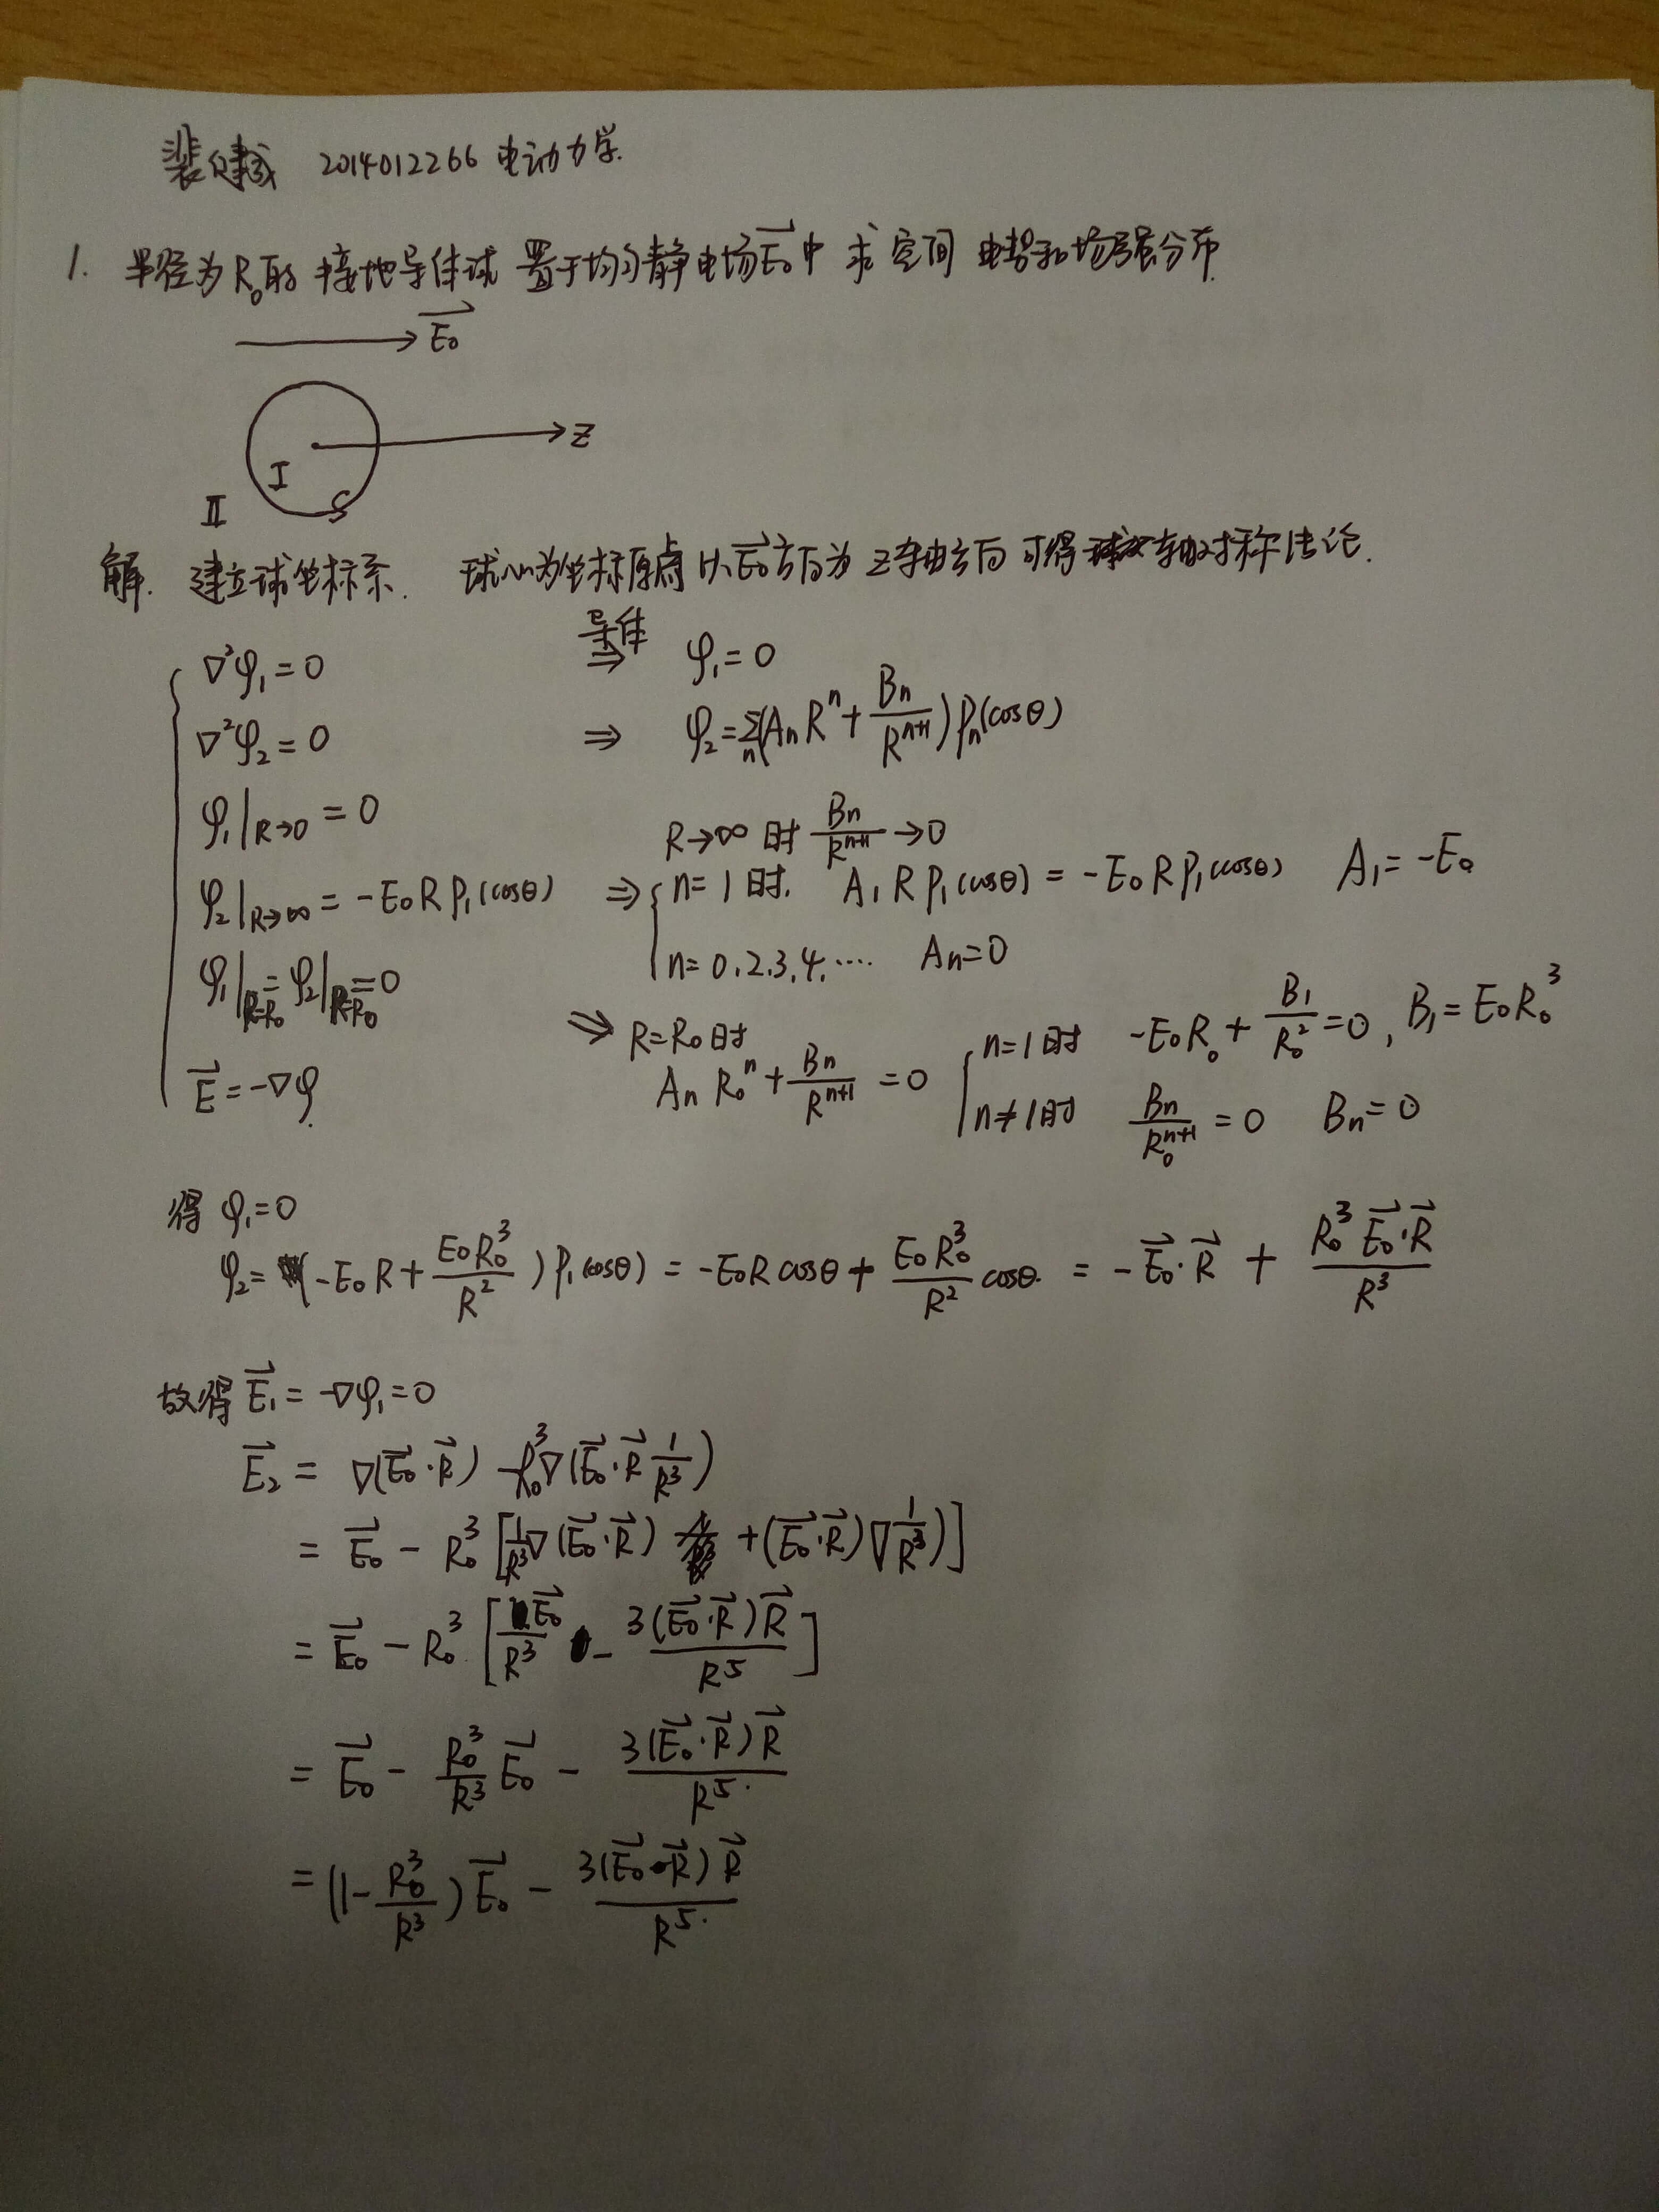 裴建诚 2014012266 电动力学.
1. 半径为R₀的 接地导体球 置于均匀静电场E₀⃗中 求空间 电势和场强分布.
E₀⃗
Z
I
II S
解. 建立球坐标系. 球心为坐标原点 以E₀⃗方向为Z轴方向 可得 轴对称结论.
∇²φ₁=0 导体⇒ φ₁=0
∇²φ₂=0 ⇒ φ₂=Σₙ(AₙRⁿ+Bₙ/Rⁿ⁺¹)Pₙ(cosθ)
φ₁|R→0 = 0 R→∞时 Bₙ/Rⁿ⁺¹→0
φ₂|R→∞ = -E₀RP₁(cosθ) ⇒ { n=1时. A₁RP₁(cosθ) = -E₀RP₁(cosθ) A₁=-E₀
n=0.2.3.4.…. Aₙ=0
φ₁|R=R₀ = φ₂|R=R₀ = 0 ⇒ R=R₀时
AₙR₀ⁿ+Bₙ/Rⁿ⁺¹ = 0 { n=1时 -E₀R₀+B₁/R₀²=0, B₁=E₀R₀³
n≠1时 Bₙ/R₀ⁿ⁺¹ = 0 Bₙ=0
E⃗=-∇φ.
得 φ₁=0
φ₂=(-E₀R+E₀R₀³/R²)P₁(cosθ) = -E₀Rcosθ+E₀R₀³/R² cosθ. = -E₀⃗·R⃗ + R₀³E₀⃗·R⃗/R³
故得 E₁⃗=-∇φ₁=0
E₂⃗ = ∇(E₀⃗·R⃗) -R₀³∇(E₀⃗·R⃗ 1/R³)
= E₀⃗ - R₀³[1/R³∇(E₀⃗·R⃗) +(E₀⃗·R⃗)∇1/R³)]
= E₀⃗ - R₀³[E₀⃗/R³ - 3(E₀⃗·R⃗)R⃗/R⁵]
= E₀⃗ - R₀³/R³ E₀⃗ - 3(E₀⃗·R⃗)R⃗/R⁵.
= (1-R₀³/R³)E₀⃗ - 3(E₀⃗·R⃗)R⃗/R⁵.